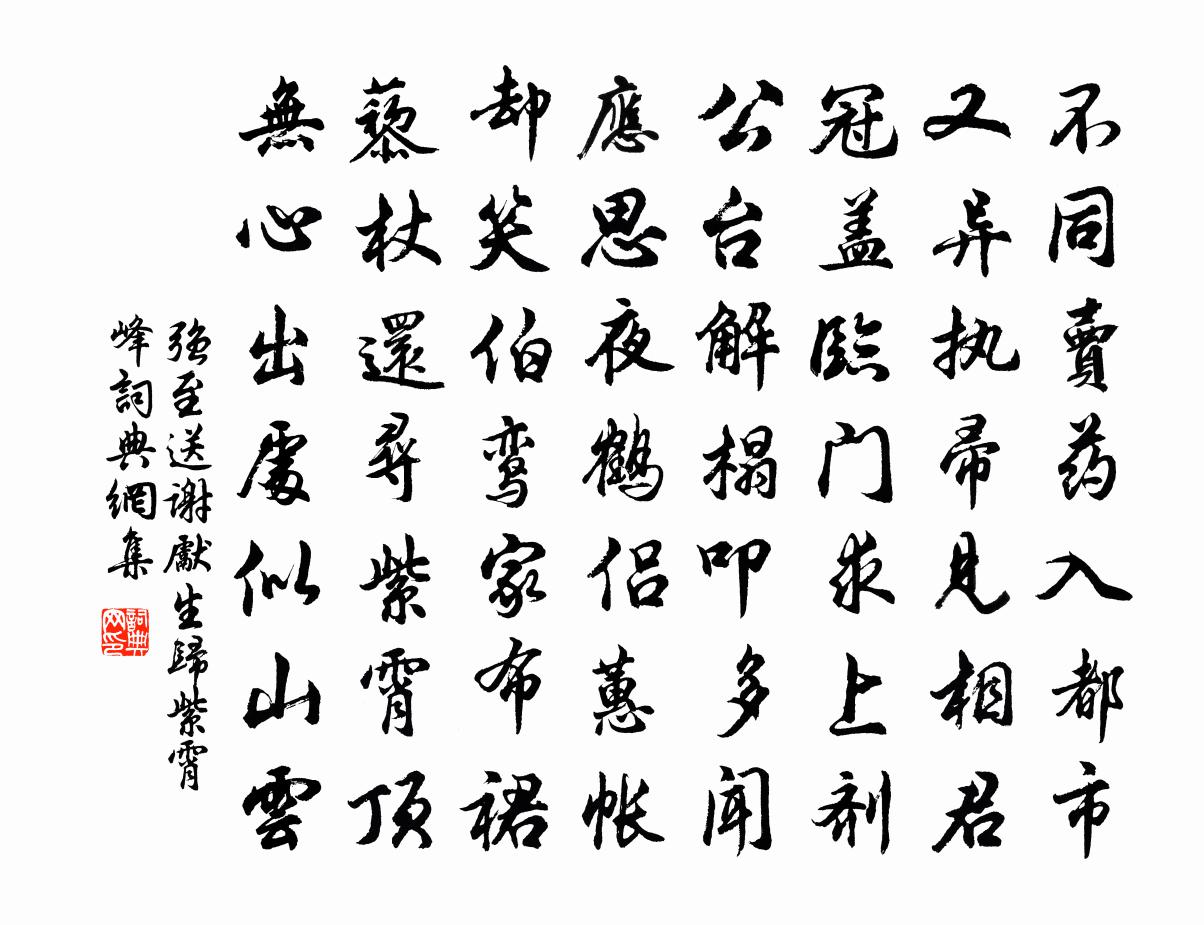 不同賣药入都市
又异执帚見相君
冠盖臨门求上剂
公台解榻叩多闻
應思夜鹤侣蕙帐
却笑伯鸾家布裙
藜杖還尋紫霄顶
無心出處似山雲
强至送谢獻生歸紫霄
峰詞典網集
詞典网印